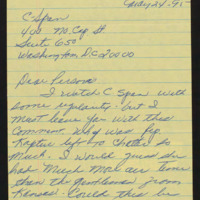 May 24 - 95
C Span
400 No. Cap St.
Suit 650
Washington, D.C 20000
Dear Persons
I watch C Span with
some regularity - but I
must leave you with this
Comment. Why was Rep.
Kaptur left to Chatter so
Much - I would guess she
had Much More air time
than the gentleman from
Kansas! Could this be